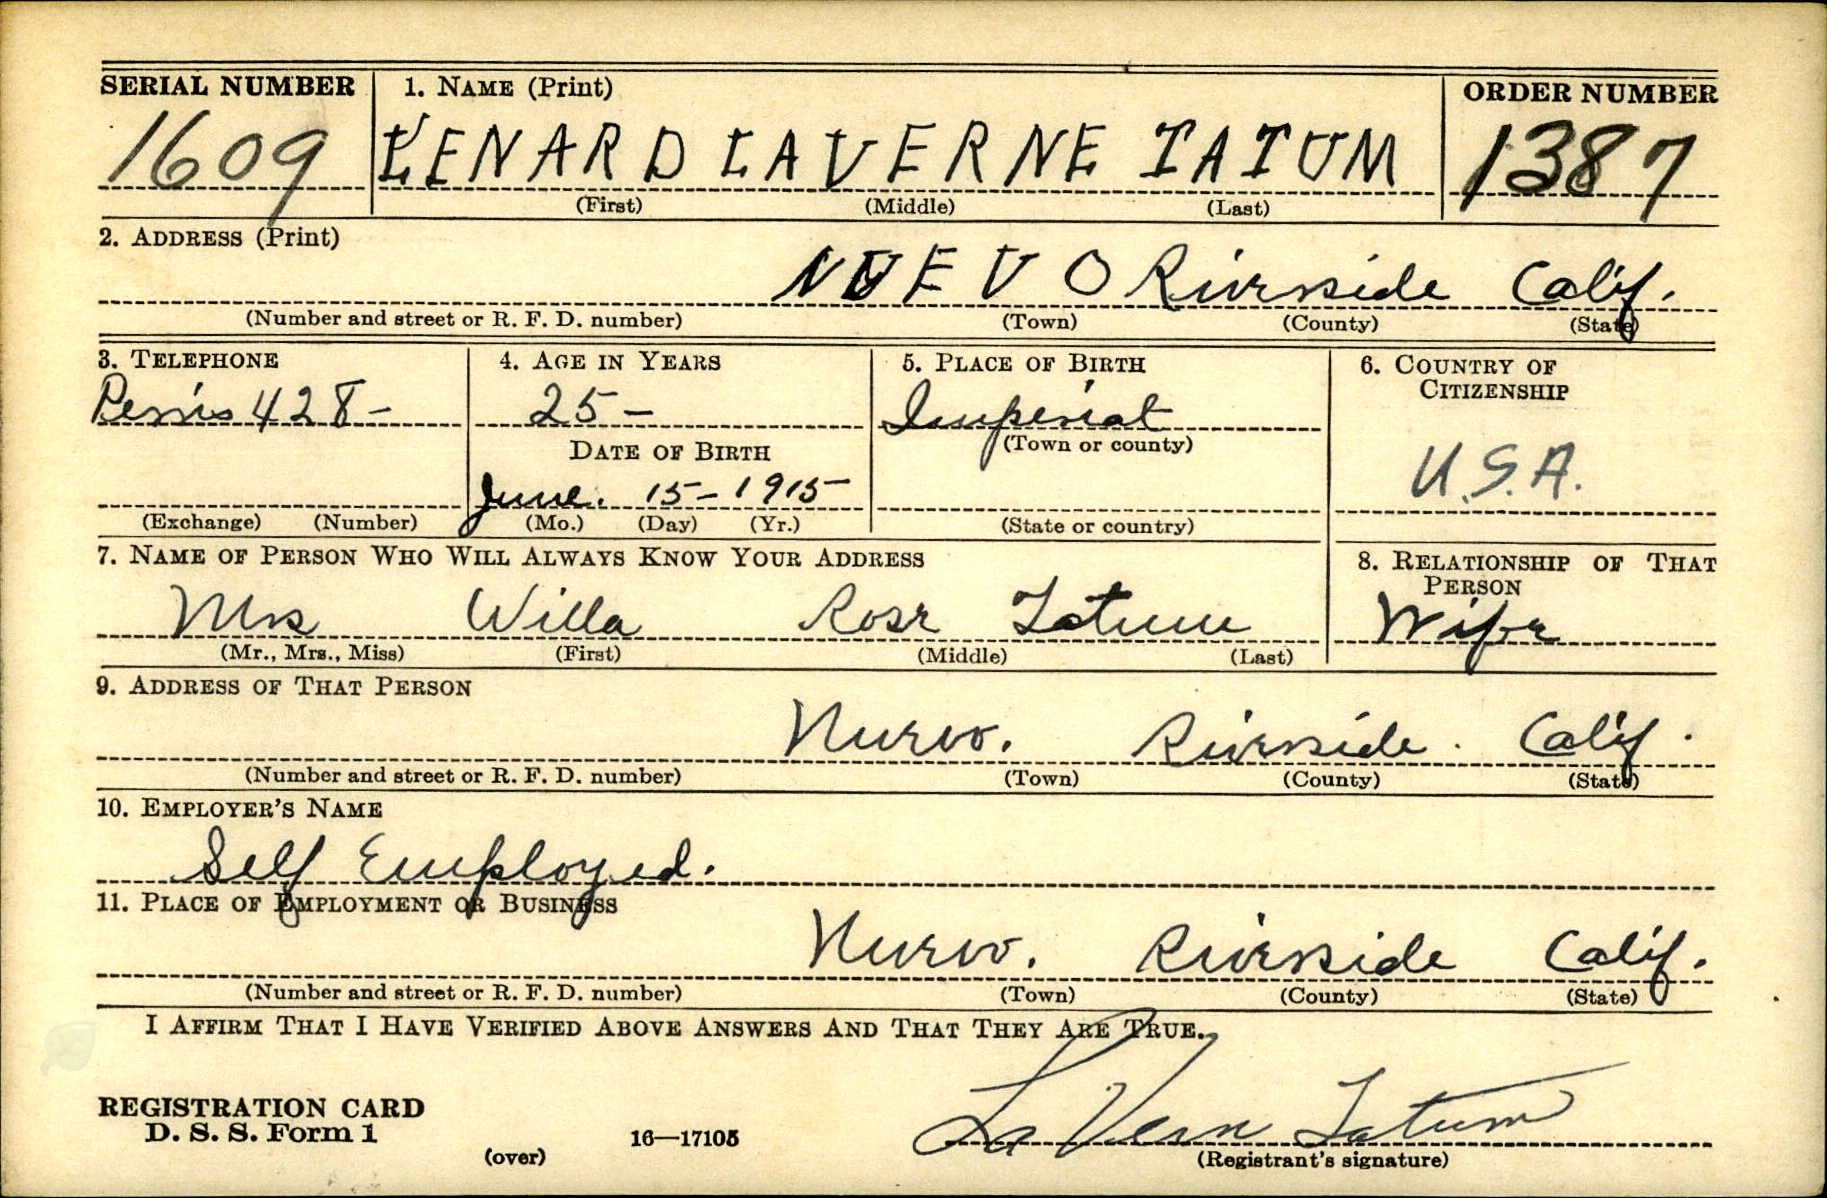 SERIAL NUMBER 1. NAME (Print) ORDER NUMBER
1609 KENARD LAVERNE TATUM 1387
(First) (Middle) (Last)
2. ADDRESS (Print)
NUEVO Riverside Calif.
(Number and street or R. F. D. number) (Town) (County) (State)
3. TELEPHONE 4. AGE IN YEARS 5. PLACE OF BIRTH 6. COUNTRY OF CITIZENSHIP
Perris 428- 25- Imperial
DATE OF BIRTH (Town or county)
U.S.A.
June. 15-1915-
(Exchange) (Number) (Mo.) (Day) (Yr.) (State or country)
7. NAME OF PERSON WHO WILL ALWAYS KNOW YOUR ADDRESS 8. RELATIONSHIP OF THAT PERSON
Mrs Willa Rose Tatum Wife
(Mr., Mrs., Miss) (First) (Middle) (Last)
9. ADDRESS OF THAT PERSON
Nuevo. Riverside. Calif.
(Number and street or R. F. D. number) (Town) (County) (State)
10. EMPLOYER'S NAME
Self Employed.
11. PLACE OF EMPLOYMENT OR BUSINESS
Nuevo. Riverside Calif.
(Number and street or R. F. D. number) (Town) (County) (State)
I AFFIRM THAT I HAVE VERIFIED ABOVE ANSWERS AND THAT THEY ARE TRUE.
REGISTRATION CARD
D. S. S. Form 1 La Vern Tatum
(over) 16—17105 (Registrant's signature)